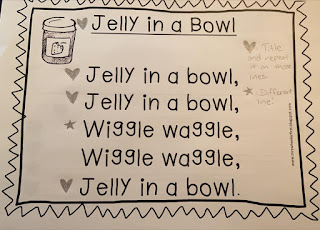 Jelly in a Bowl
Title
and repeat
it on three
lines.
Different
line!
Jelly in a bowl,
Jelly in a bowl,
Wiggle waggle,
Wiggle waggle,
Jelly in a bowl.